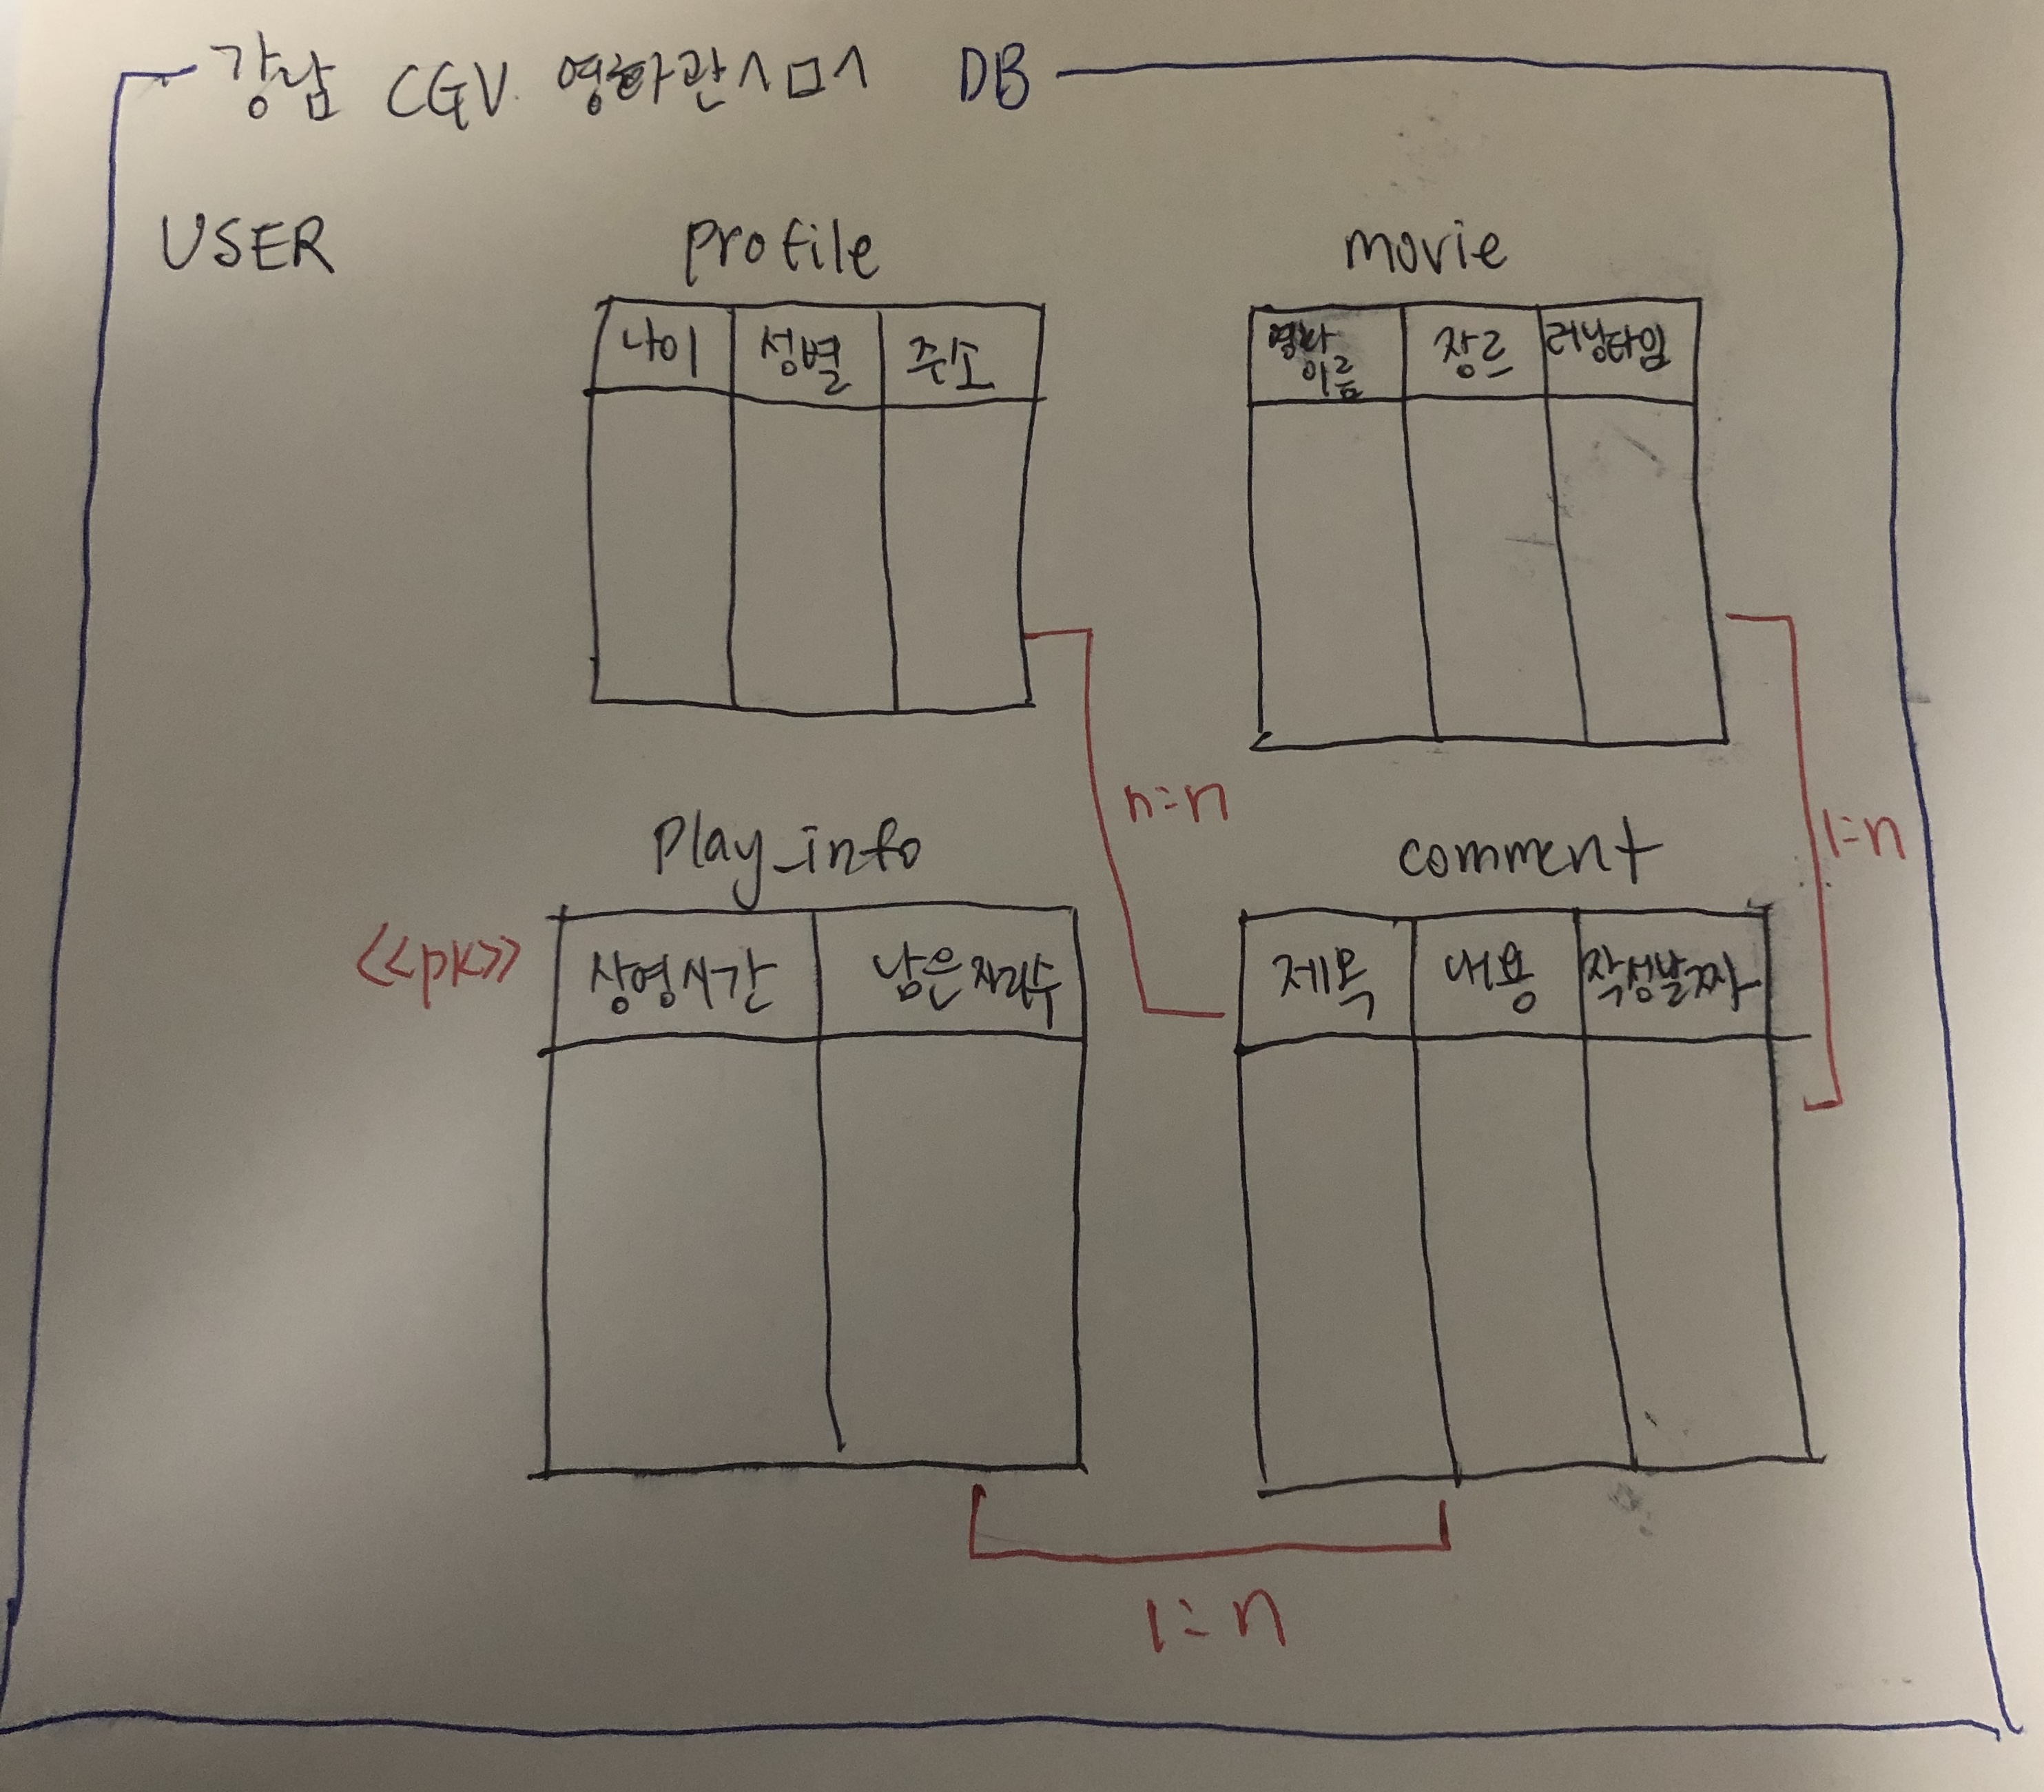 강남 CGV 영화관ㅅㅁㅅ DB
USER
profile
나이 성별 주소
movie
영화 이름 장르 러닝타임
n:n
1:n
Play_info
<<pk>>
상영시간 남은자리수
comment
제목 내용 작성날짜
1:n